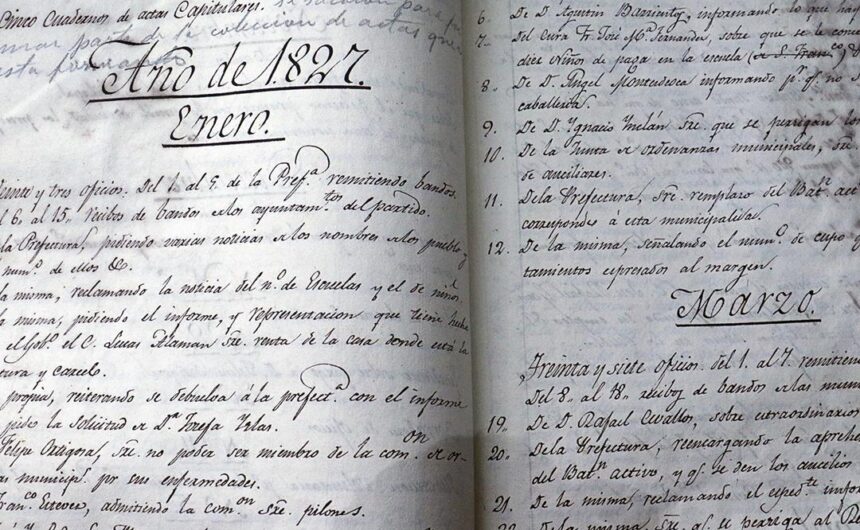 Cinco Cuadernos de actas Capitulares.
mar parte de la coleccion de actas que
Año de 1827.
Enero.
einte y tres oficios. Del 1. al 5. de la Pref.ª remitiendo bandos.
l 6. al 15. recibos de bandos a los ayuntam.tos del partido.
la Prefectura, pidiendo varias noticias a los nombres a los pueblos y
num.º de ellos &.
a misma; reclamando la noticia del n.º de Escuelas y el de niños.
a misma, pidiendo el informe, y representacion que tiene hecha
el Gob.º el C. Lucas Alaman sre. renta de la casa donde está la
tura y carcel.
propia, reiterando se debuelva á la prefect.ª con el informe
pide la solicitud de D.ª Josefa Yslas.
Felipe Ortigosa, sre. no poder ser miembro de la com.on de or
as municip.s por sus enfermedades.
Fran.co Estevez, admitiendo la com.on sre. pilones.
6. De D. Agustin Barrientos, informando lo que ha
7. Del Cura Fr. José M.ª Fernandez, sobre que se le conce
diez Niños de paga en la escuela de S. Fran.co
8. De D. Angel Montesdeoca informando p.r q.e no s
caballeria.
9. De D. Ygnacio Yclán sre. que se persigan los
10. De la Junta de ordenanzas municipales, sre.
de auciliares.
11. De la Prefectura, sre. remplazo del Bat.n act
corresponde á esta municipalida.
12. De la misma, señalando el num.º de cupo q
tamientos espresados al margen.
Marzo.
Treinta y siete oficios. del 1. al 7. remitiend
Del 8. al 18. recibos de bandos a las muni
19. De D. Rafael Cevallos, sobre extraordinarios
20. De la Prefectura, reencargando la aprehe
del Bat.n activo, y q.e se den los aucilios
21. De la misma, reclamando el esped.te inform
sre. que se persiga al